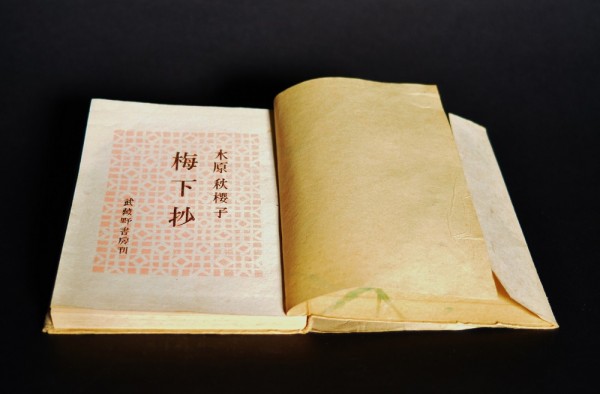 水原秋櫻子
梅下抄
武蔵野書房刊